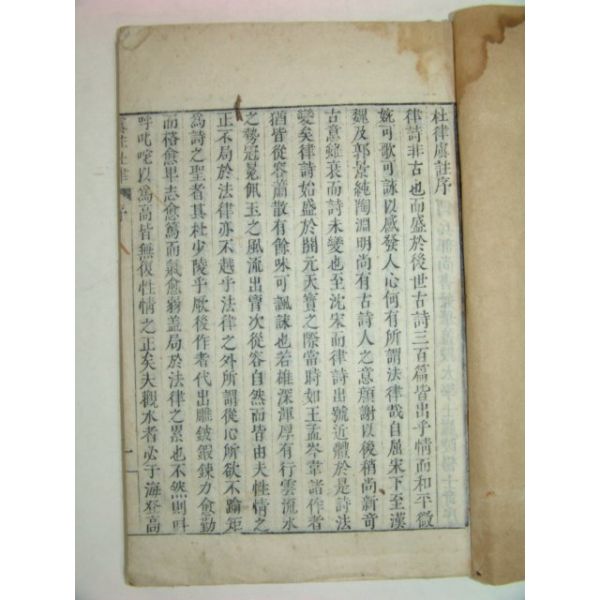 杜律虞註序
律詩非古也而盛於後世古詩三百篇皆出乎情而和平微
婉可歌可詠以感發人心何有所謂法律哉自屈宋下至漢
魏及郭景純陶淵明尚有古詩人之意顔謝以後稍尚新奇
古意雖衰而詩未變也至沈宋而律詩出號近體於是詩法
變矣律詩始盛於開元天寶之際當時如王孟岑韋諸作者
猶皆從容蕭散有餘味可諷詠也若雄深渾厚有行雲流水
之勢冠冕佩玉之風流出胷次從容自然而皆由夫性情之
正不局於法律亦不越乎法律之外所謂從心所欲不踰矩
為詩之聖者其杜少陵乎厥後作者代出雕鎪鍛鍊力愈勤
而格愈卑志愈篤而氣愈窮盖局於法律之累也不然則叫
呼叱咤以為高皆無復性情之正矣夫觀水者必于海登高
虞註杜律 序 一